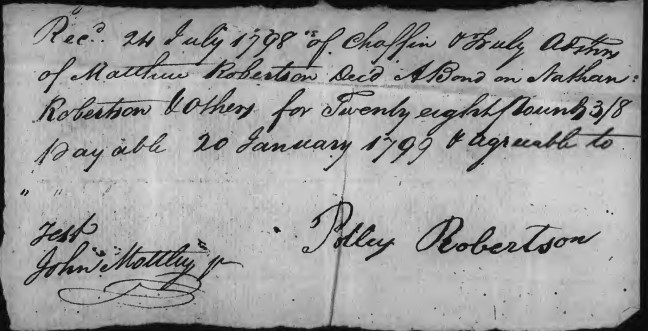 Recd. 24 July 1798 of Chaffin & Truly Admrs
of Matthew Robertson Decd A Bond on Nathan:
Robertson & Others for Twenty eight Pounds 3/8
payable 20 January 1799 & agreeable to
" "
Test
John Mottley jr
Polley Robertson